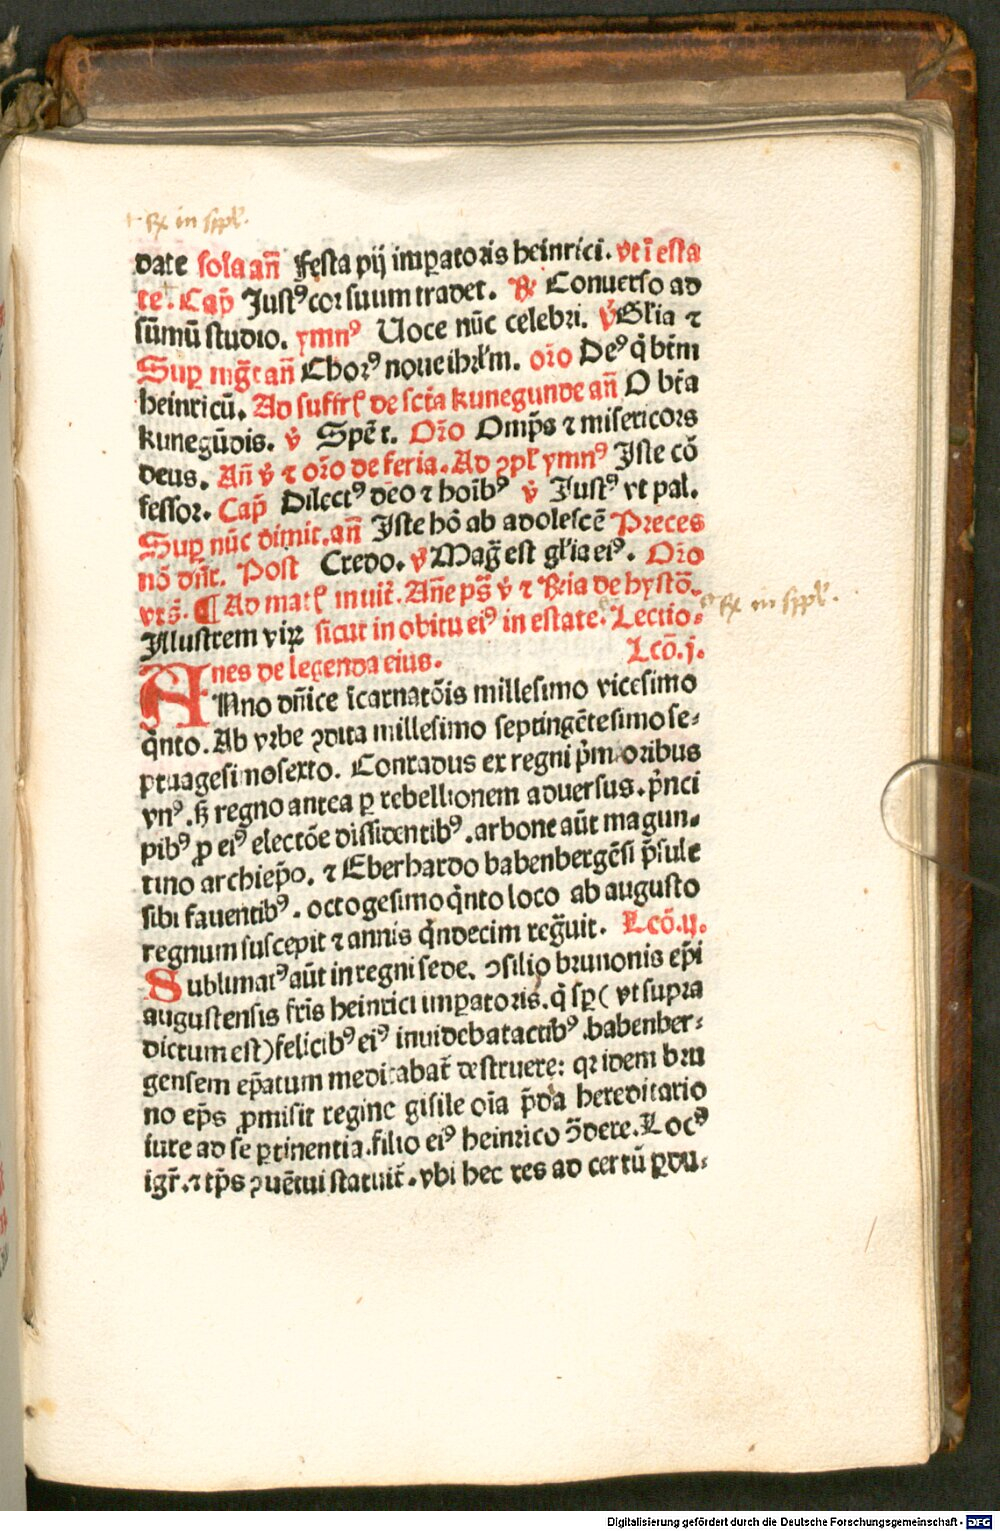 ℞ in sppl̄.
date sola an̄ Festa pij imꝑatoris heinrici. vt ī esta
te. Cap̄ Justꝰ cor suum tradet. ℞ Conuerso ad
sūmū studio. ymnꝰ Uoce nūc celebri. v̄ Gl̄ia ⁊
Suꝑ mg̅t an̄ Chorꝰ noue ihrl̄m. or̄o Deꝰ q̇ bt̄m
heinricū. Ad suffrꝭ de sct̄a kunegunde an̄ O bt̄a
kunegūdis. v̄ Spē t. Or̄o Omp̄s ⁊ misericors
deus. An̄ v̄ ⁊ or̄o de feria. Ad ↄpꝉ ymnꝰ Iste cō
fessor. Cap̄ Dilectꝰ deo ⁊ hoībꝰ v̄ Justꝰ vt pal.
Suꝑ nūc dimit. an̄ Iste hō ab adolescē Preces
nō dn̄r. Post Credo. v̄ Mag̅ est gl̄ia eiꝰ. Or̄o
vts̄. ¶ Ad matꝭ inuit̄. Ane ps̄ v̄ ⁊ Rr̄ia de hystō.
℞ in sppl̄.
Illustrem viꝝ sicut in obitu eiꝰ in estate. Lectio⸗
nes de legenda eius. Lcō. j.
ANno dn̄ice īcarnatōis millesimo vicesimo
q̇nto. Ab vrbe ↄdita millesimo septingētesimo se⸗
ptuagesimosexto. Conradus ex regni p̄moribus
vnꝰ. sꝫ regno antea ꝑ rebellionem aduersus. p̄nci
pibꝰ ꝓ eiꝰ electōe dissidentibꝰ. arbone aūt magun⸗
tino archiep̄o. ⁊ Eberhardo babenbergēsi p̄sule
sibi fauentibꝰ. octogesimoq̇nto loco ab augusto
regnum suscepit ⁊ annis q̇ndecim reg̅uit. Lcō. ij.
Sublimatꝰ aūt in regni sede. ↄsilio brunonis ep̄i
augustensis fr̄is heinrici imꝑatoris. q̇ sꝑ ( vt supra
dictum est) felicibꝰ eiꝰ inuidebat actibꝰ. babenber⸗
gensem ep̄atum meditabat̄ destruere: qꝛ idem bru
no ep̄s ꝓmisit regine gisile oīa p̄dia hereditario
iure ad se ꝑtinentia. filio eiꝰ heinrico ↄ̄dere. Locꝰ
igr̄. ⁊ tp̄s ↄuētui statuit̄. vbi hec res ad certū ꝑdu⸗
Digitalisierung gefördert durch die Deutsche Forschungsgemeinschaft - DFG